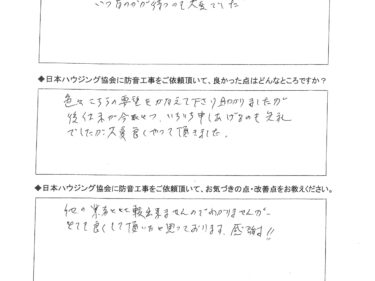 ◆日本ハウジング協会に防音工事をご依頼頂いて、良かった点はどんなところですか？
色々こちらの要望をかなえて下さり助かりましたが
いちいち申しあげるのも失礼
でしたが大変良くやって頂きました。
◆日本ハウジング協会に防音工事をご依頼頂いて、お気づきの点・改善点をお教えください。
他の業者と比較出来ませんのでわかりませんが
とても良くして頂いたと思っております。感謝!!